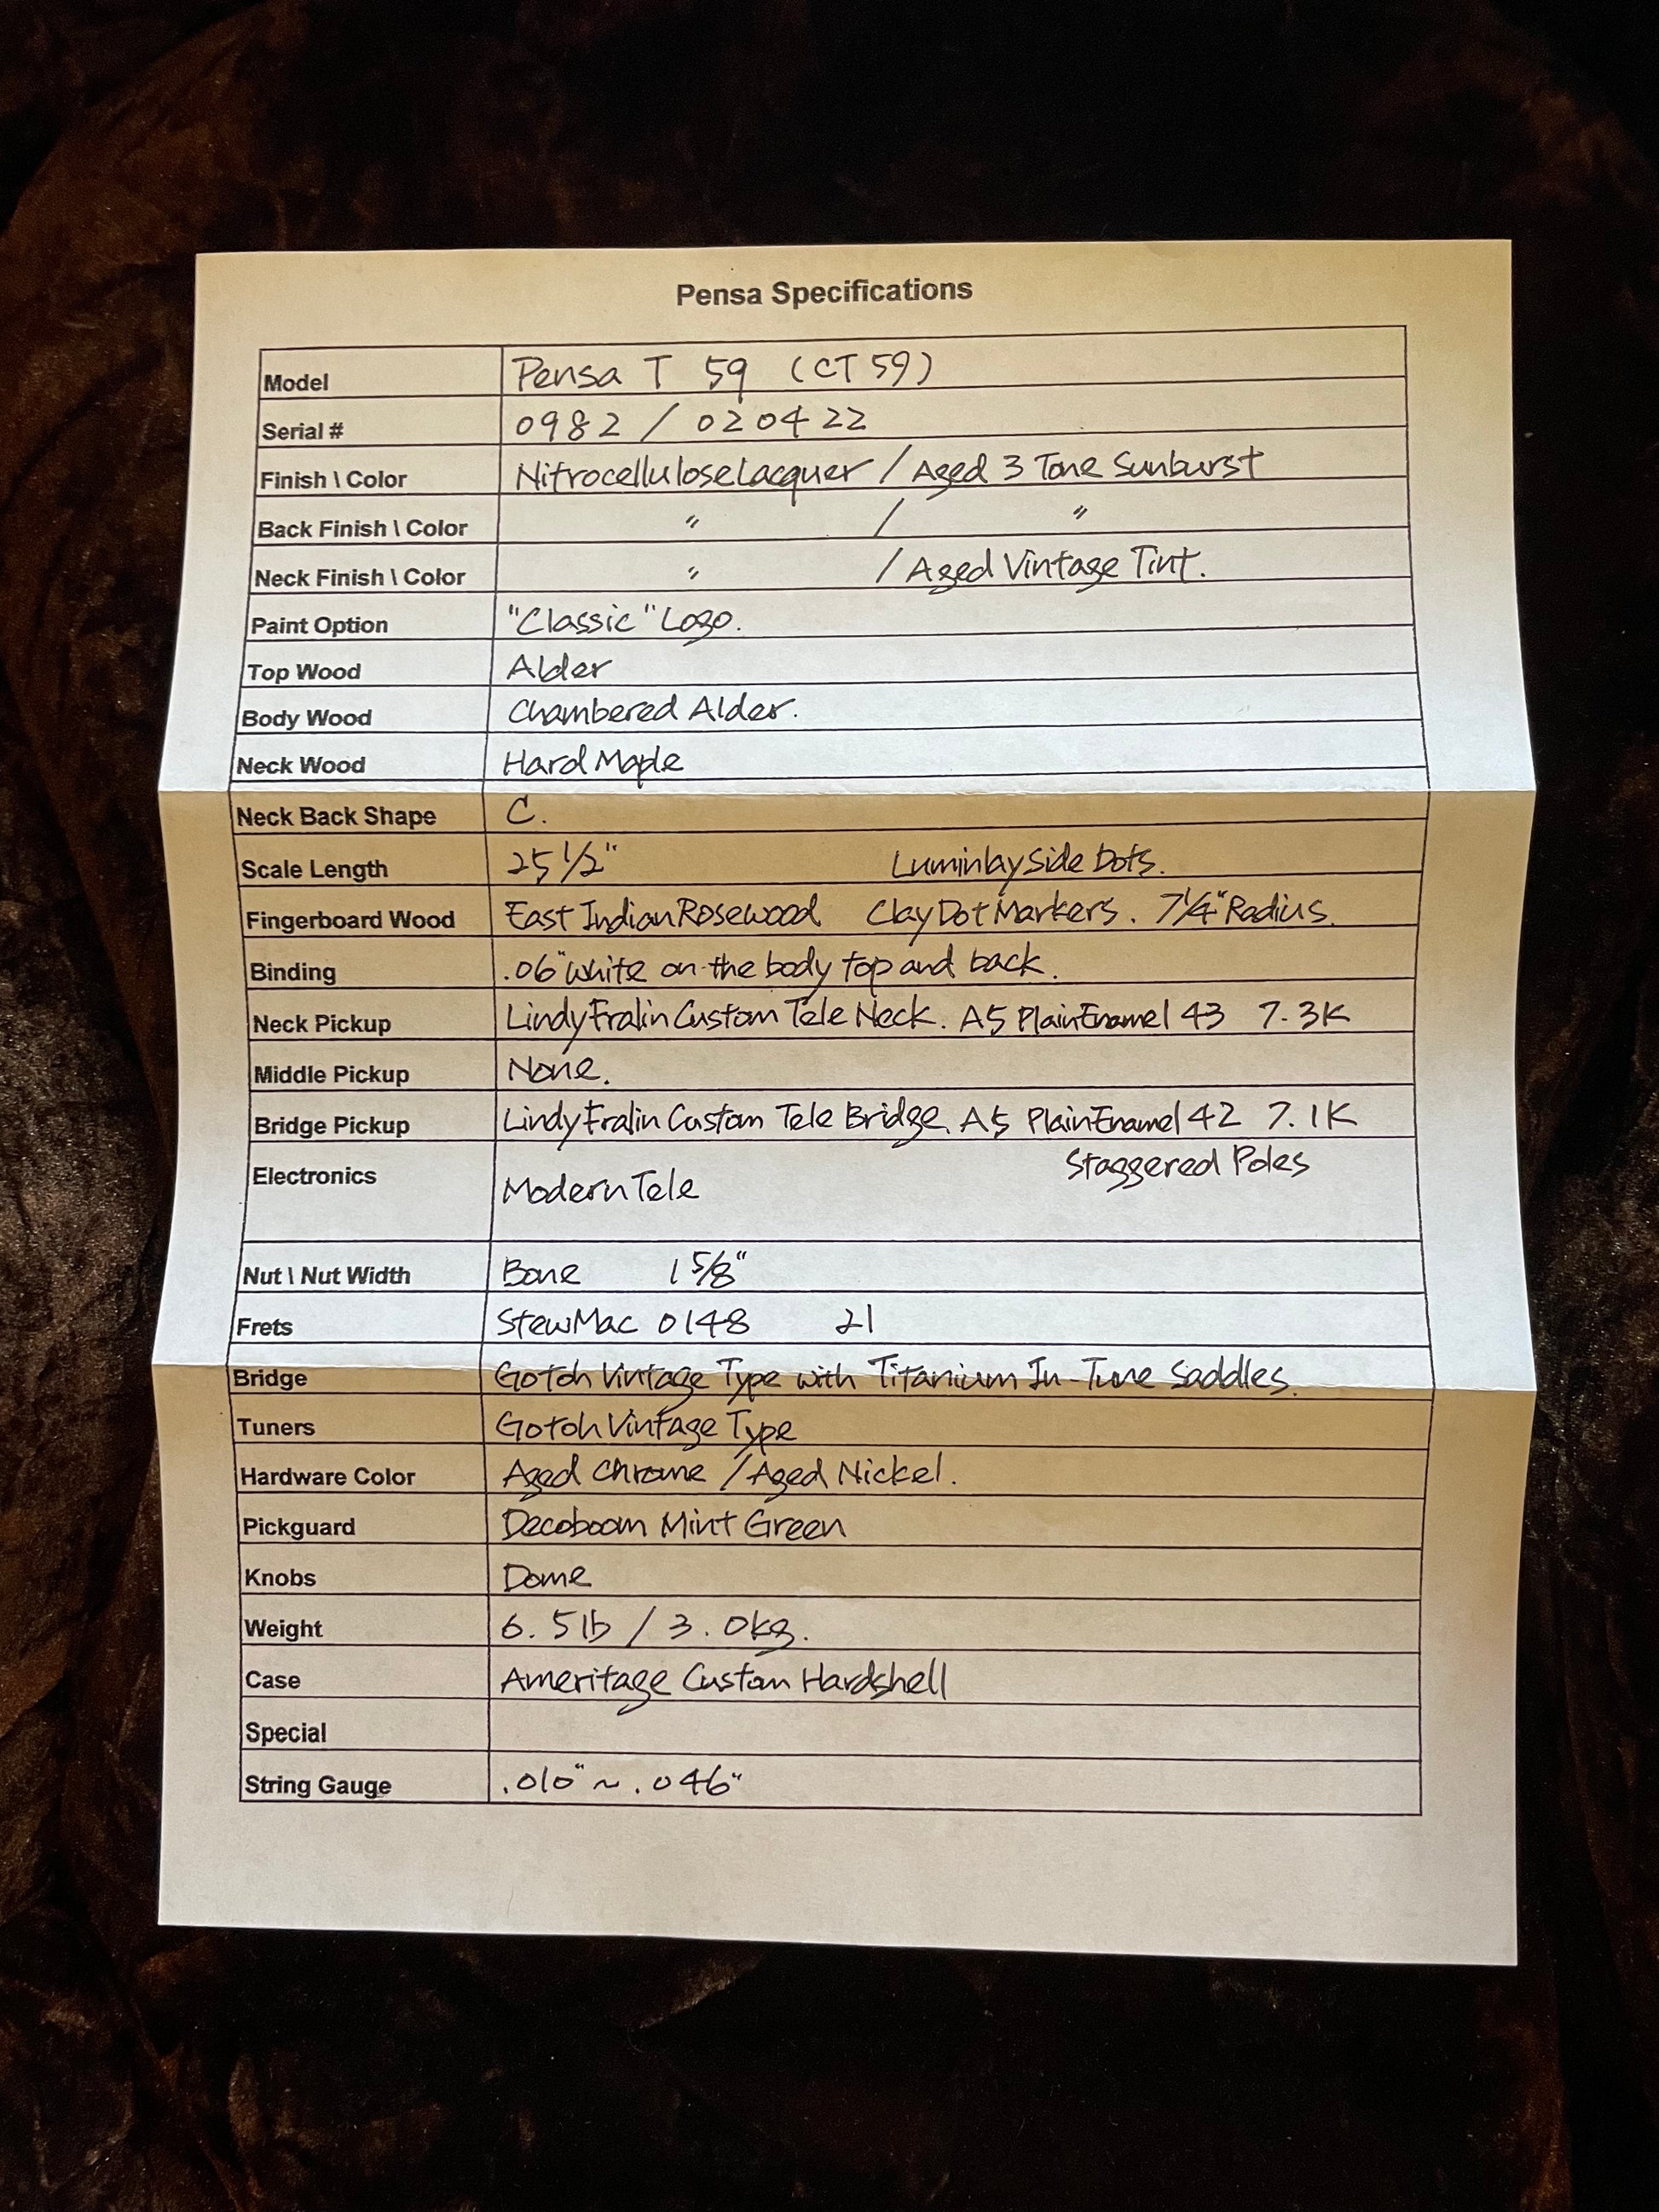 Pensa Specifications
Model Pensa T 59 (CT 59)
Serial # 0982 / 020422
Finish \ Color Nitrocellulose Lacquer / Aged 3 Tone Sunburst
Back Finish \ Color " / "
Neck Finish \ Color " / Aged Vintage Tint.
Paint Option "Classic" Logo.
Top Wood Alder
Body Wood Chambered Alder.
Neck Wood Hard Maple
Neck Back Shape C.
Scale Length 25 1/2" Luminlay Side Dots.
Fingerboard Wood East Indian Rosewood Clay Dot Markers. 7 1/4" Radius.
Binding .06" white on the body top and back.
Neck Pickup Lindy Fralin Custom Tele Neck. A5 Plain Enamel 43 7.3K
Middle Pickup None.
Bridge Pickup Lindy Fralin Custom Tele Bridge. A5 Plain Enamel 42 7.1K
Staggered Poles
Electronics Modern Tele
Nut \ Nut Width Bone 1 5/8"
Frets StewMac 0148 21
Bridge Gotoh Vintage Type with Titanium In-Tune Saddles.
Tuners Gotoh Vintage Type
Hardware Color Aged Chrome / Aged Nickel.
Pickguard Decoboom Mint Green
Knobs Dome
Weight 6.5lb / 3.0kg.
Case Ameritage Custom Hardshell
Special
String Gauge .010" ~ .046"